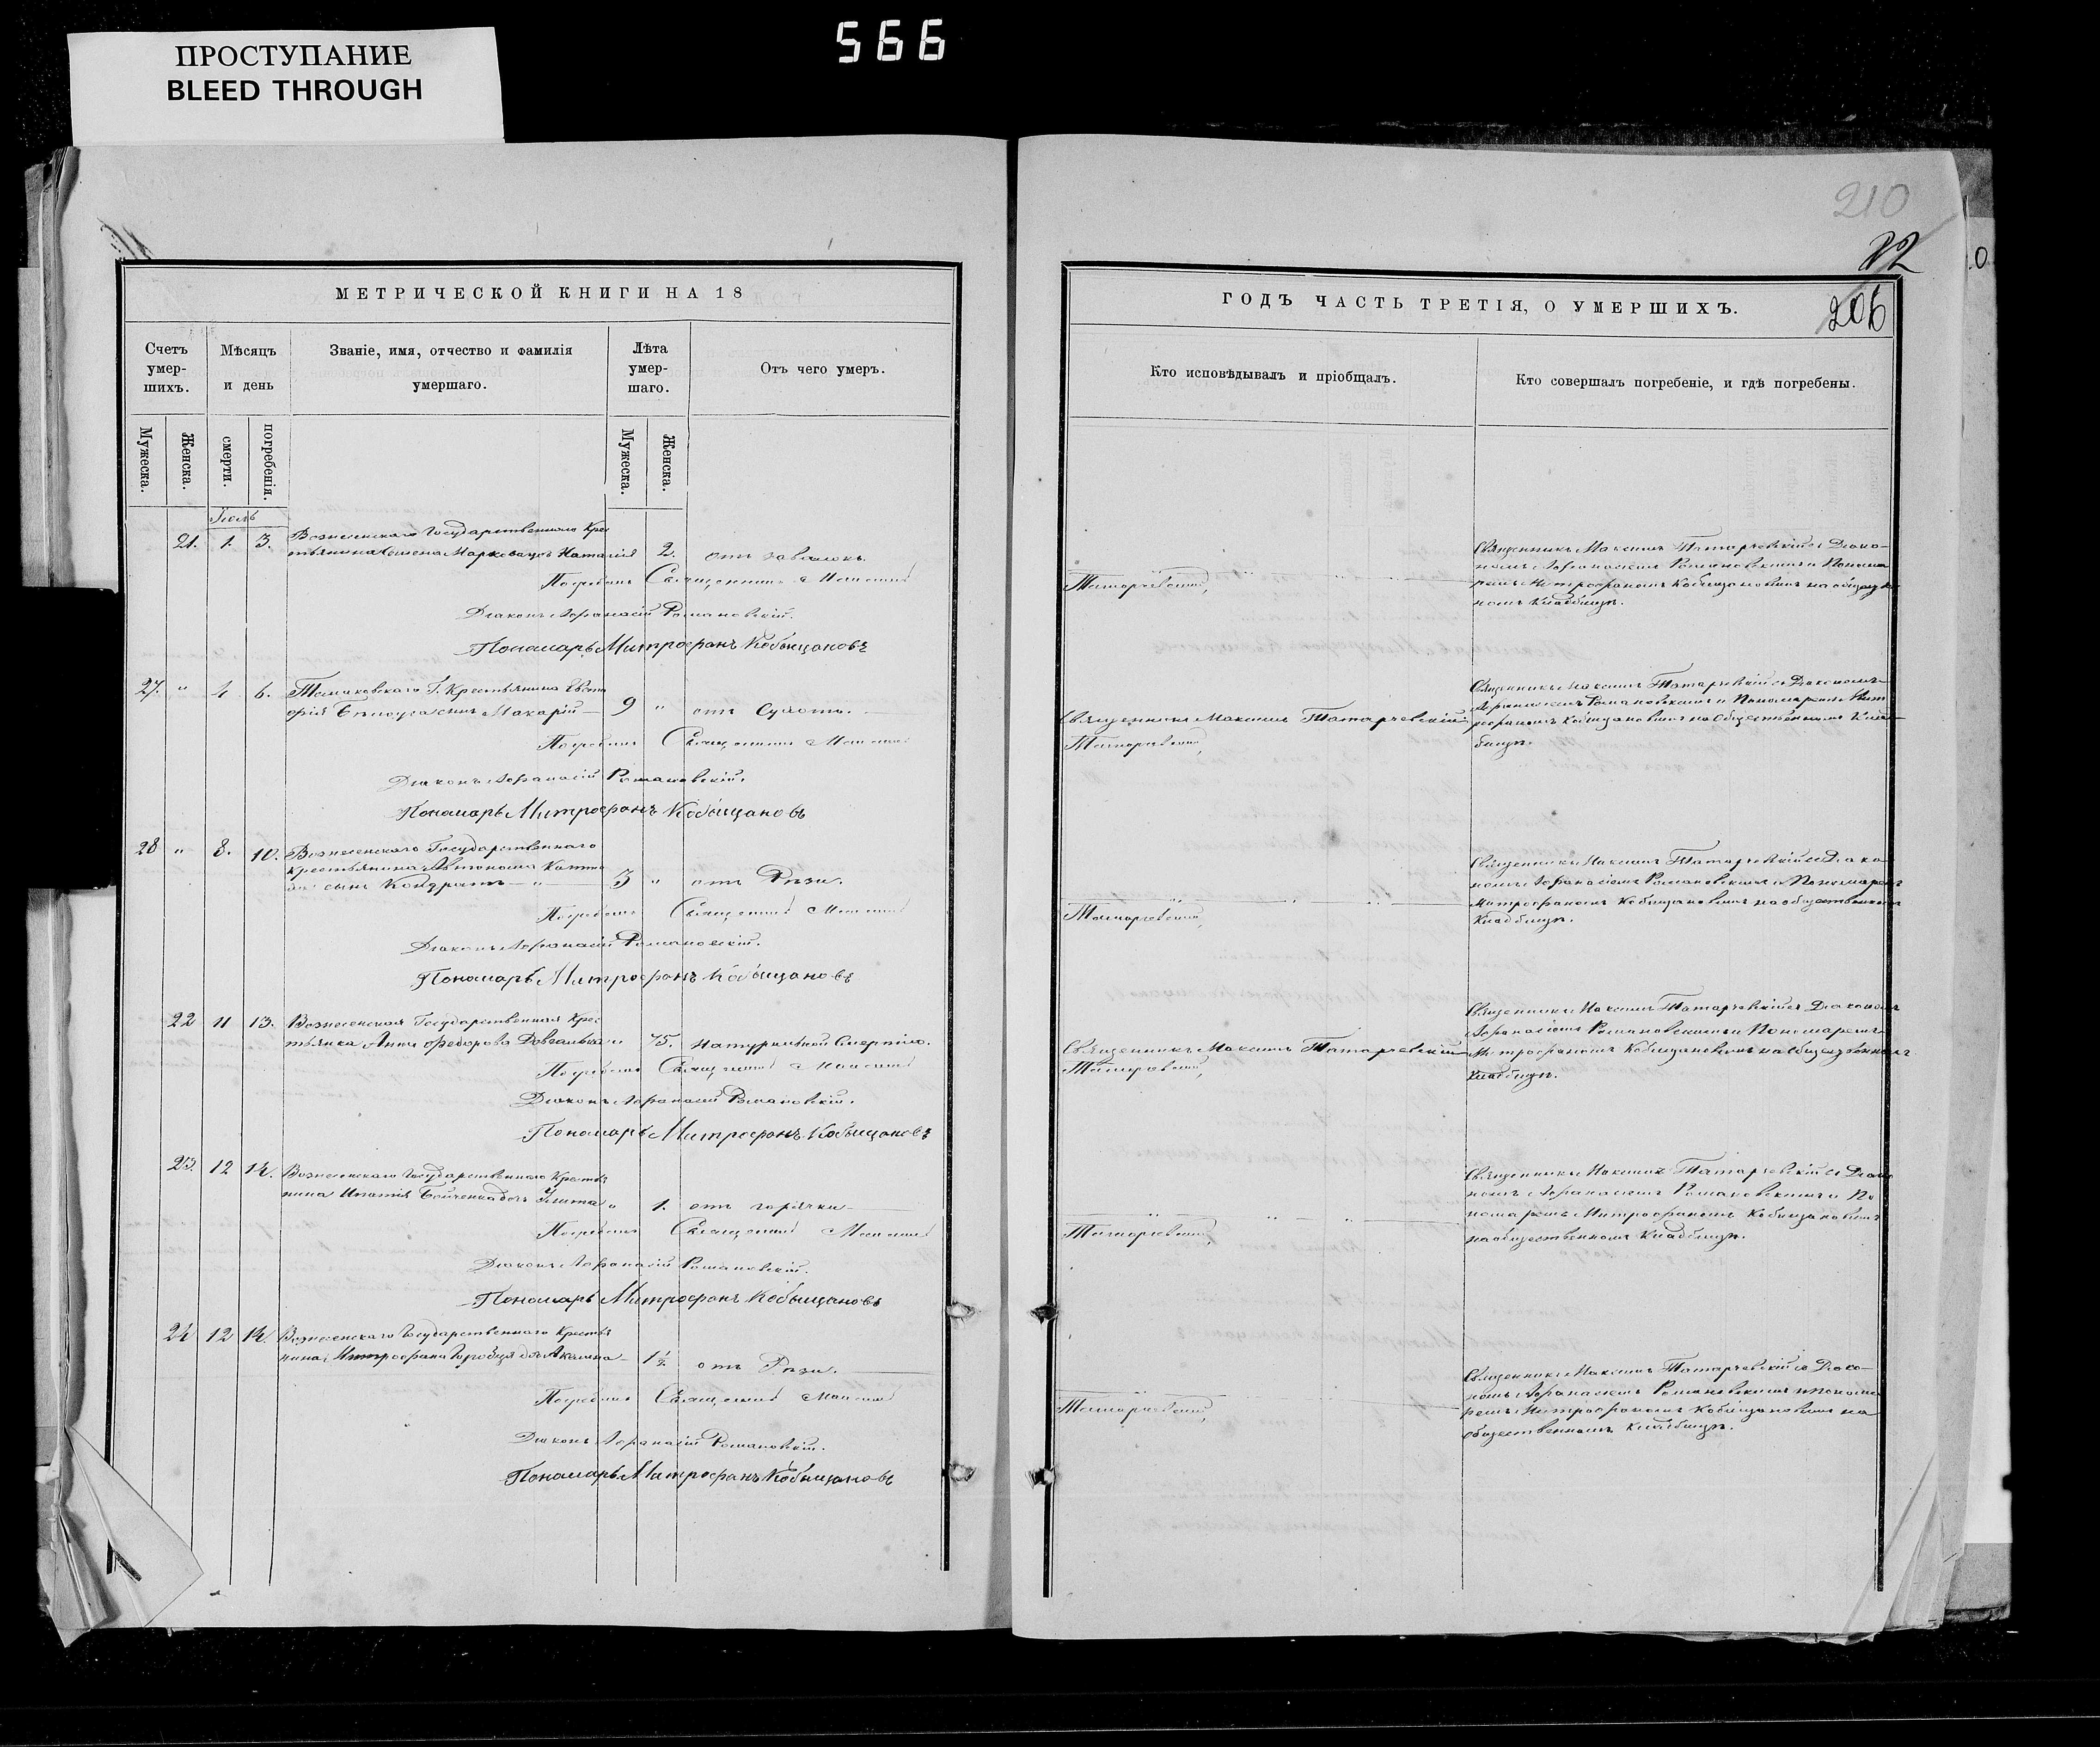 ПРОСТУПАНИЕ
BLEED THROUGH
566
210
22
206
МЕТРИЧЕСКОЙ КНИГИ НА 18
Счетъ умер-шихъ.
Мѣсяцъ и день
Званіе, имя, отчество и фамилія умершаго.
Лѣта умер-шаго.
Отъ чего умеръ.
Мужеска.
Женска.
смерти.
погребенія.
Мужеска.
Женска.
Іюль
21. 1. 3. Вознесенскаго Государственнаго Крес
тьянина Семена дочь Наталія 2. отъ
Погребалъ Священникъ Максимъ
Діаконъ Афанасій Романовскій.
Пономарь Митрофанъ Кобыщановъ
27. " 4 6. Г. Крестьянина
Макарій 9 " отъ Сухоты.
Погребалъ Священникъ Максимъ
Діаконъ Афанасій Романовскій.
Пономарь Митрофанъ Кобыщановъ
28 " 8. 10. Вознесенскаго Государственнаго
крестьянина Автонома
сынъ Кондратъ " 3 " отъ Рѣзи.
Погребалъ Священникъ Максимъ
Діаконъ Афанасій Романовскій.
Пономарь Митрофанъ Кобыщановъ
22 11 13. Вознесенская Государственная Крес
тьянка Анна Федорова " 75. натуральной Смертію.
Погребалъ Священникъ Максимъ
Діаконъ Афанасій Романовскій.
Пономарь Митрофанъ Кобыщановъ
23. 12 14. Вознесенскаго Государственнаго Крестья
нина Игнатія дочь Улита " 1. отъ горячки
Погребалъ Священникъ Максимъ
Діаконъ Афанасій Романовскій.
Пономарь Митрофанъ Кобыщановъ
24 12 14. Вознесенскаго Государственнаго Крестья
нина Митрофана Акилина 1½ отъ Рѣзи.
Погребалъ Священникъ Максимъ
Діаконъ Афанасій Романовскій.
Пономарь Митрофанъ Кобыщановъ
ГОДЪ ЧАСТЬ ТРЕТІЯ, О УМЕРШИХЪ.
Кто исповѣдывалъ и пріобщалъ.
Кто совершалъ погребеніе, и гдѣ погребены.
Татарчевскій,
Священникъ Максимъ Татарчевскій съ Діако-
номъ Афанасіемъ Романовскимъ и Понома
ремъ Митрофаномъ Кобыщановымъ на
Кладбищѣ.
Священникъ Максимъ Татарчевскій
Татарчевскій,
Священникъ Максимъ Татарчевскій съ Діакономъ
Афанасіемъ Романовскимъ и Пономаремъ Мит
рофаномъ Кобыщановымъ на Общественномъ Клад
бищѣ.
Татарчевскій,
Священникъ Максимъ Татарчевскій съ Діако
номъ Афанасіемъ Романовскимъ и Пономаремъ
Митрофаномъ Кобыщановымъ на общественномъ
Кладбищѣ.
Священникъ Максимъ Татарчевскій
Татарчевскій,
Священникъ Максимъ Татарчевскій съ Діакономъ
Афанасіемъ Романовскимъ и Пономаремъ
Митрофаномъ Кобыщановымъ на Общественномъ
Кладбищѣ.
Татарчевскій,
Священникъ Максимъ Татарчевскій съ Діако
номъ Афанасіемъ Романовскимъ и По
номаремъ Митрофаномъ Кобыщановымъ
на общественномъ Кладбищѣ.
Татарчевскій,
Священникъ Максимъ Татарчевскій съ Діако-
номъ Афанасіемъ Романовскимъ и понома
ремъ Митрофаномъ Кобыщановымъ на
общественномъ Кладбищѣ.